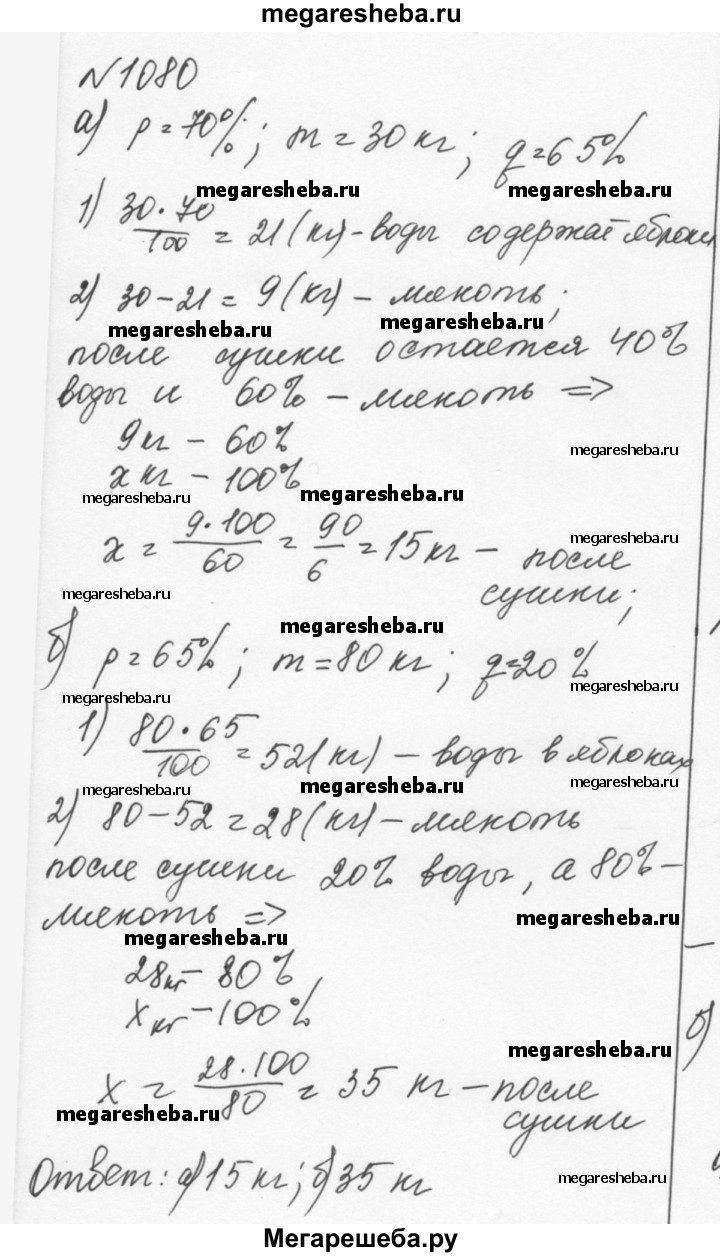 megaresheba.ru
№1080
а) p = 70%; m = 30 кг; q = 65%
megaresheba.ru megaresheba.ru
1) 30·70/100 = 21 (кг) - воды содержат яблоки
2) 30-21 = 9 (кг) - мякоть;
megaresheba.ru megaresheba.ru
после сушки остается 40%
воды и 60% - мякоть =>
9кг - 60%
megaresheba.ru
x кг - 100%
megaresheba.ru megaresheba.ru
x = 9·100/60 = 90/6 = 15кг - после
megaresheba.ru
сушки;
megaresheba.ru
megaresheba.ru
б) p = 65%; m = 80 кг; q = 20%
megaresheba.ru
megaresheba.ru
1) 80·65/100 = 52 (кг) - воды в яблоках
megaresheba.ru megaresheba.ru megaresheba.ru
2) 80-52 = 28 (кг) - мякоть
после сушки 20% воды, а 80% -
мякоть =>
megaresheba.ru
megaresheba.ru
28кг - 80%
x кг - 100%
б)
megaresheba.ru
x = 28·100/80 = 35 кг - после
megaresheba.ru
сушки
Ответ: а) 15 кг; б) 35 кг
megaresheba.ru
Мегарешеба.ру